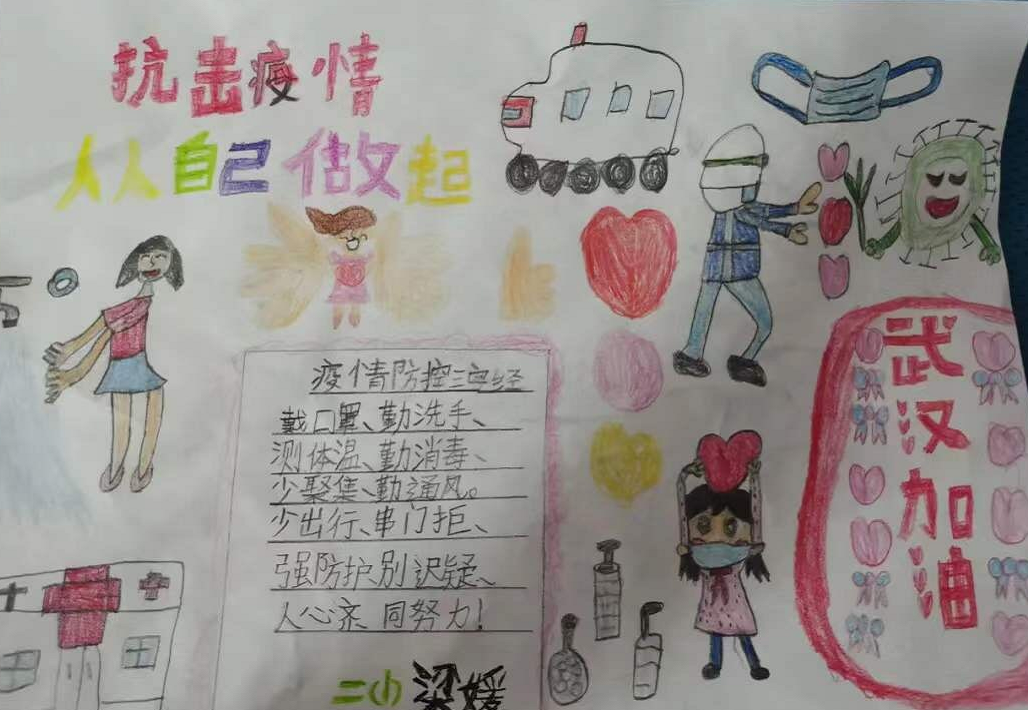 抗击疫情
人人自己做起
疫情防控三字经
戴口罩、勤洗手、
测体温、勤消毒、
少聚集、勤通风。
少出行、串门拒、
强防护、别迟疑、
人心齐、同努力!
二小 梁媛
武汉加油